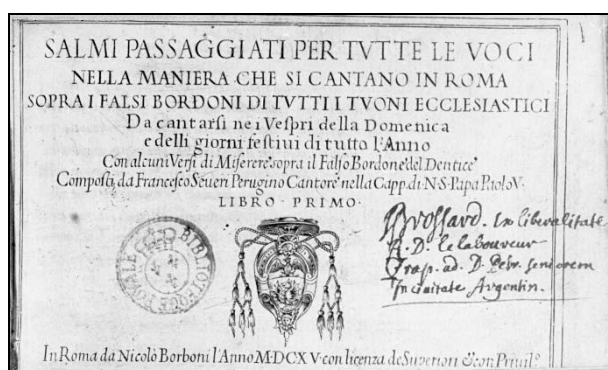 SALMI PASSAGGIATI PER TVTTE LE VOCI
NELLA MANIERA CHE SI CANTANO IN ROMA
SOPRA I FALSI BORDONI DI TVTTI I TVONI ECCLESIASTICI
Da cantarsi ne i Vespri della Domenica
e delli giorni festiui di tutto l'Anno
Con alcuni Versi di Miserere sopra il Falso Bordone del Dentice
Composti da Francesco Seueri Perugino Cantore nella Capp. di N. S. Papa Paolo V.
LIBRO · PRIMO ·
Brossard. Ex liberalitate
R. D. le laboureur
Trap. ad. D. Petr. seniorem
In ciuitate Argentin.
BIBLIOTEQUE ROYALE
In Roma da Nicolò Borboni l'Anno M·DC·XV· con licenza de Superiori & con Priuil.°